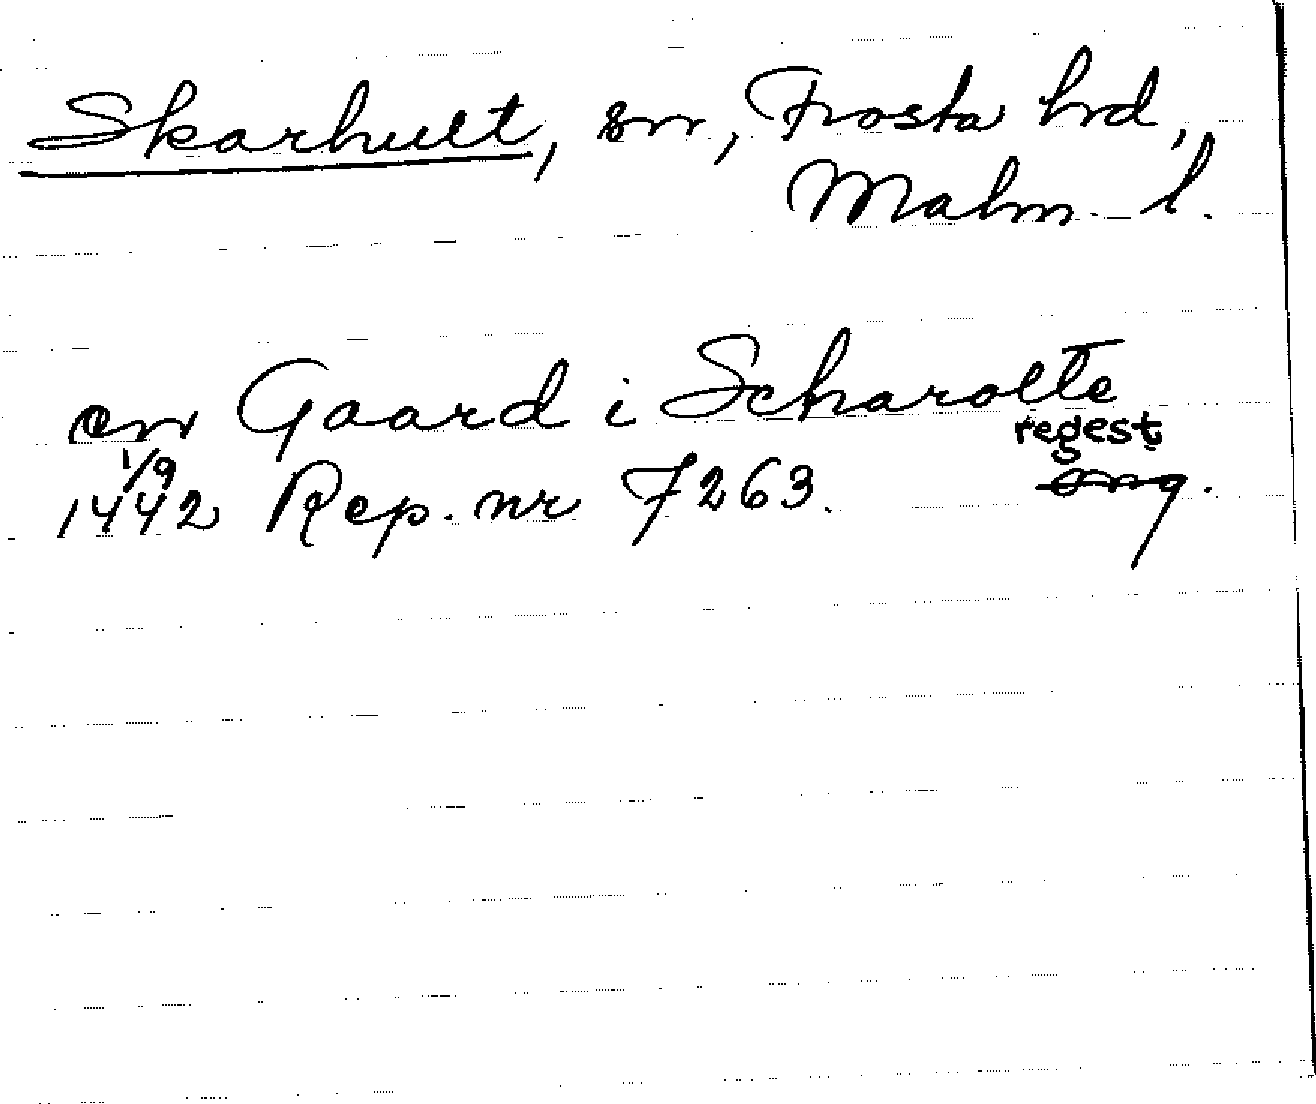 Skarhult, sn, Frosta hrd,
Malm. l.
en Gaard i Scharolte
regest
1/9
1442 Rep. nr 7263. orig.